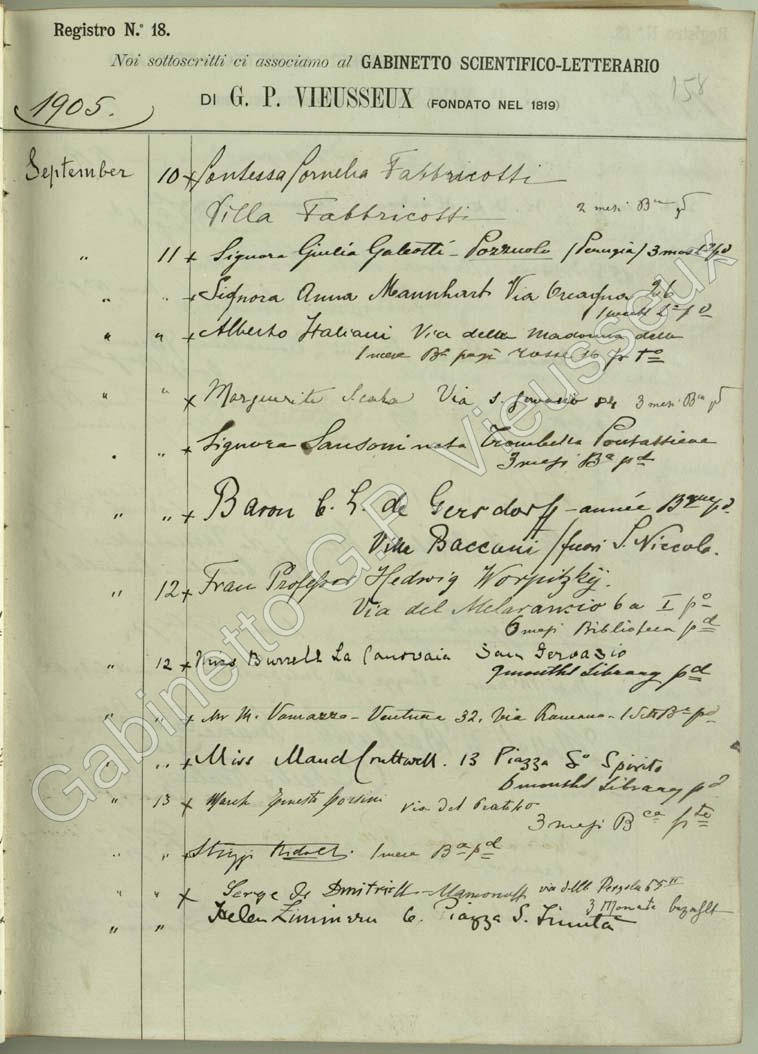 Registro N.º 18.
Noi sottoscritti ci associamo al GABINETTO SCIENTIFICO-LETTERARIO
158
1905.
DI G. P. VIEUSSEUX (FONDATO NEL 1819)
September 10 x Contessa Cornelia Fabbricotti
Villa Fabbricotti 2 mesi Bca pd
" 11 x Signora Giulia Galeotti - Pozzuolo (Perugia) 3 mesi
" " x Signora Anna Mannhart Via Orcagna 26
" " x Alberto Italiani Via della Madonna della
1 mese Ba pag Tosse 16 po to
" " x Marguerite Scala Via S. Gervasio 84 3 mesi Bca pd
" " x Signora Sansoni nata Trombetta Pontassieve
3 mesi Ba pd
" " x Baron C. L. de Gersdorff - année Bque pd
Villa Baccani / fuori S. Niccolo.
" 12 x Frau Professor Hedwig Worpitzky.
Via del Melarancio 6a I po
6 mesi Biblioteca pd
" 12 x Miss Burrell La Canovaia San Gervasio
9 months Library pd
" " x M. Ventura 32, Via Romana - Ba pd
" " x Miss Maud Cruttwell. 13 Piazza So Spirito
6 months Library pd
" 13 x March Ernesto Corsini Via del Pratello
3 mesi Bca
" " x Strozzi Ridolfi. 1 mese Ba pd
" " x Serge de Dmitrieff-Mamonoff via della Pergola 65
3 Monate bezahlt
" " Helen Zimmern 6. Piazza S. Trinità
Gabinetto G.P. Vieusseux